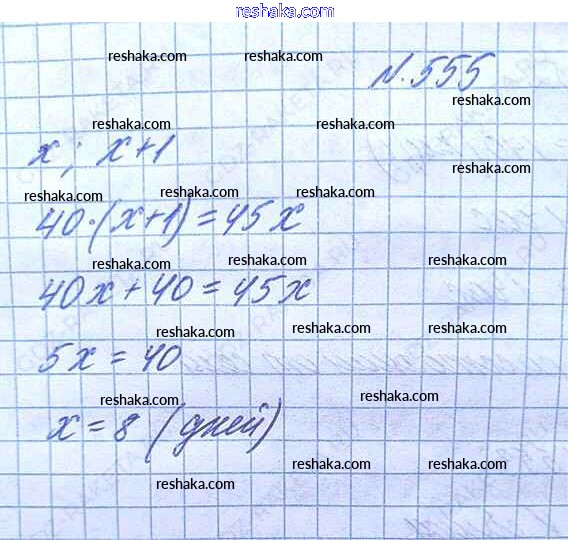 reshaka.com
reshaka.com reshaka.com
N.555
reshaka.com
reshaka.com reshaka.com
x; x+1
reshaka.com
reshaka.com reshaka.com reshaka.com
40·(x+1)=45x
reshaka.com reshaka.com reshaka.com
40x+40=45x
reshaka.com reshaka.com reshaka.com
5x=40
reshaka.com reshaka.com
x=8 (дней)
reshaka.com reshaka.com
reshaka.com